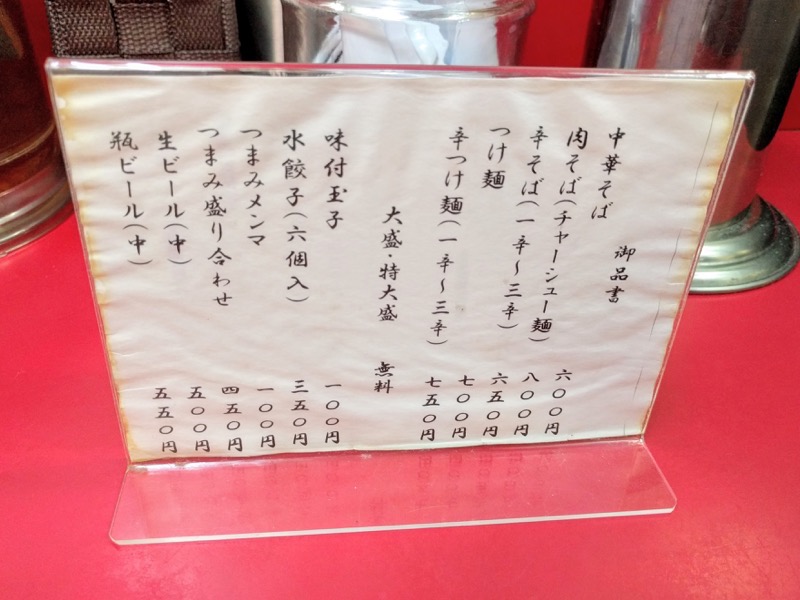 御品書
中華そば 六〇〇円
肉そば(チャーシュー麺) 八〇〇円
辛そば(一辛〜三辛) 六五〇円
つけ麺 七〇〇円
辛つけ麺(一辛〜三辛) 七五〇円
大盛・特大盛 無料
味付玉子 一〇〇円
水餃子(六個入) 三五〇円
つまみメンマ 一〇〇円
つまみ盛り合わせ 四五〇円
生ビール(中) 五〇〇円
瓶ビール(中) 五五〇円